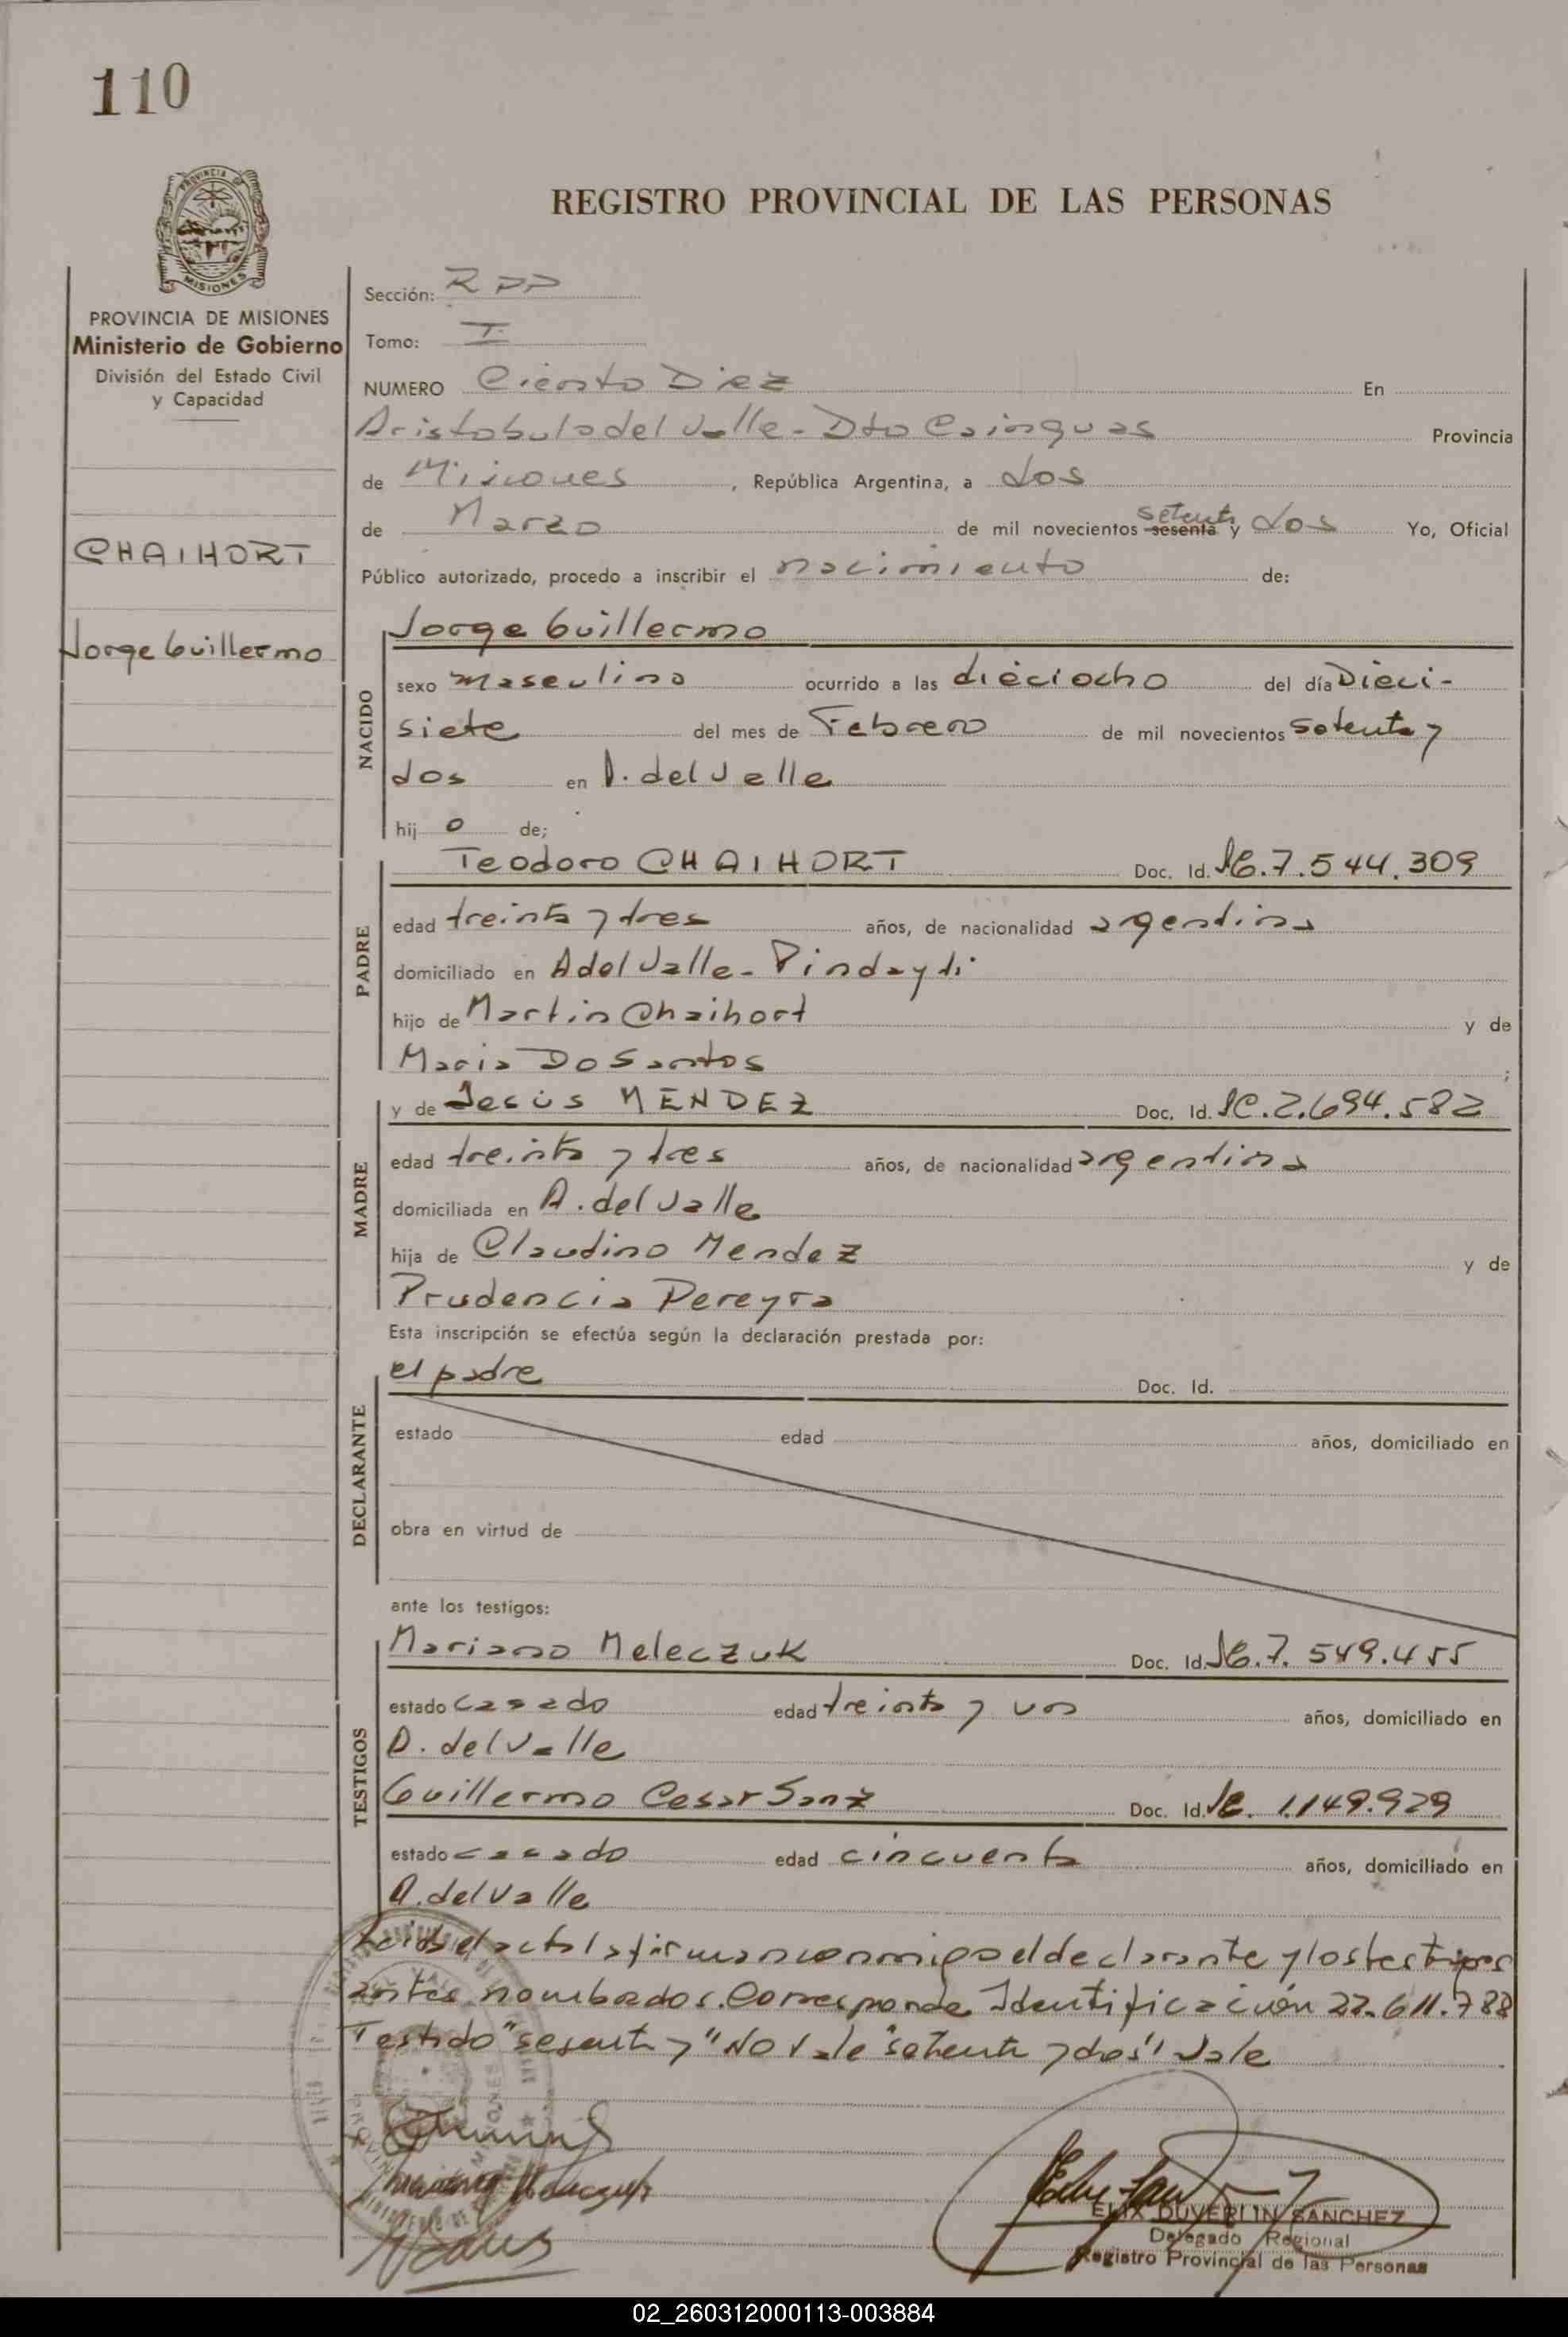 110
REGISTRO PROVINCIAL DE LAS PERSONAS
PROVINCIA DE MISIONES
Ministerio de Gobierno
División del Estado Civil
y Capacidad
CHAIHORT
Jorge Guillermo
Sección: RPP
Tomo: I
NUMERO Ciento Diez En
Aristobulo del Valle - Dto Cainguas Provincia
de Misiones, República Argentina, a dos
de Marzo de mil novecientos sesenta setenta y dos Yo, Oficial
Público autorizado, procedo a inscribir el nacimiento de:
NACIDO
Jorge Guillermo
sexo masculino ocurrido a las dieciocho del día Dieci-
siete del mes de Febrero de mil novecientos setenta y
dos en A. del Valle
hij o de;
PADRE
Teodoro CHAIHORT Doc. Id. 7.544.309
edad treinta y tres años, de nacionalidad argentina
domiciliado en A del Valle - Pindayti
hijo de Martin Chaihort y de
Maria Do Santos ;
MADRE
y de Jesús MENDEZ Doc. Id. LC. 2.694.582
edad treinta y tres años, de nacionalidad argentina
domiciliada en A. del Valle
hija de Claudino Mendez y de
Prudencia Pereyra
Esta inscripción se efectúa según la declaración prestada por:
DECLARANTE
el padre Doc. Id.
estado edad años, domiciliado en
obra en virtud de
ante los testigos:
TESTIGOS
Mariano Meleczuk Doc. Id. 7.549.455
estado casado edad treinta y un años, domiciliado en
A. del Valle
Guillermo Cesar Sanz Doc. Id. 1.149.929
estado casado edad cincuenta años, domiciliado en
A. del Valle
Leida el acta la firman conmigo el declarante y los testigos
antes nombrados. Corresponde Identificación 22.611.788
Testado "sesenta y" No Vale "setenta y dos" Vale
ELIX DUVERLIN SANCHEZ
Delegado Regional
Registro Provincial de las Personas
02_260312000113-003884